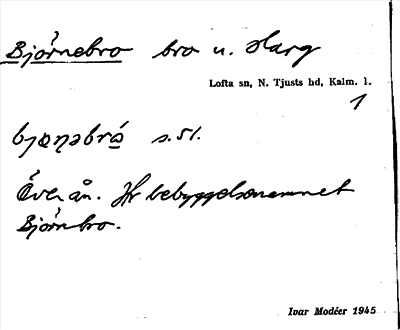 Björnebro bro u. Harg
Lofta sn, N. Tjusts hd, Kalm. l.
1
bjœṇəbrå s. 51.
Över ån. Hr bebyggelsenamnet
Björnbro.
Ivar Modéer 1945